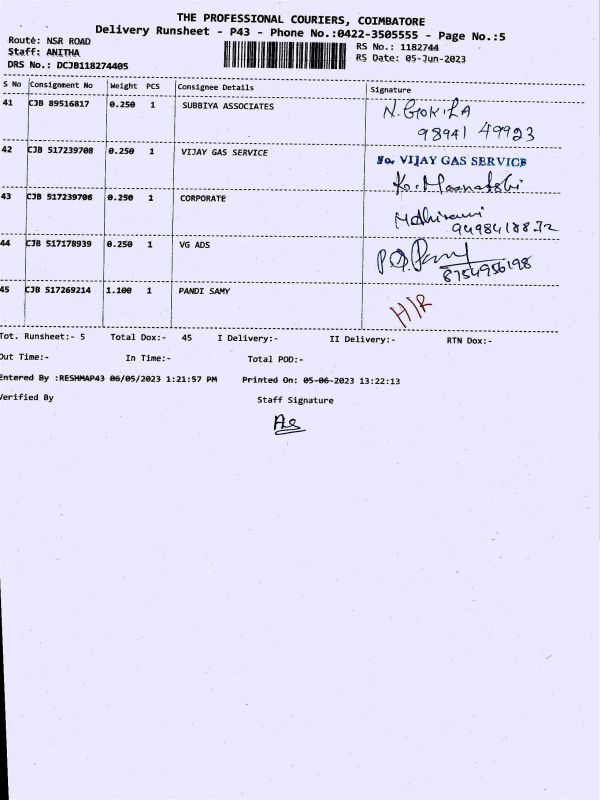 THE PROFESSIONAL COURIERS, COIMBATORE
Delivery Runsheet - P43 - Phone No.:0422-3505555 - Page No.:5
Route: NSR ROAD
Staff: ANITHA
DRS No.: DCJB118274405
RS No.: 1182744
RS Date: 05-Jun-2023
S No Consignment No Weight PCS Consignee Details Signature
41 CJB 89516817 0.250 1 SUBBIYA ASSOCIATES N. GOKILA
98941 49923
42 CJB 517239708 0.250 1 VIJAY GAS SERVICE For VIJAY GAS SERVICE
43 CJB 517239706 0.250 1 CORPORATE
44 CJB 517178939 0.250 1 VG ADS
8754956198
45 CJB 517269214 1.100 1 PANDI SAMY H/R
Tot. Runsheet:- 5 Total Dox:- 45 I Delivery:- II Delivery:- RTN Dox:-
Out Time:- In Time:- Total POD:-
Entered By :RESHMAP43 06/05/2023 1:21:57 PM Printed On: 05-06-2023 13:22:13
Verified By Staff Signature